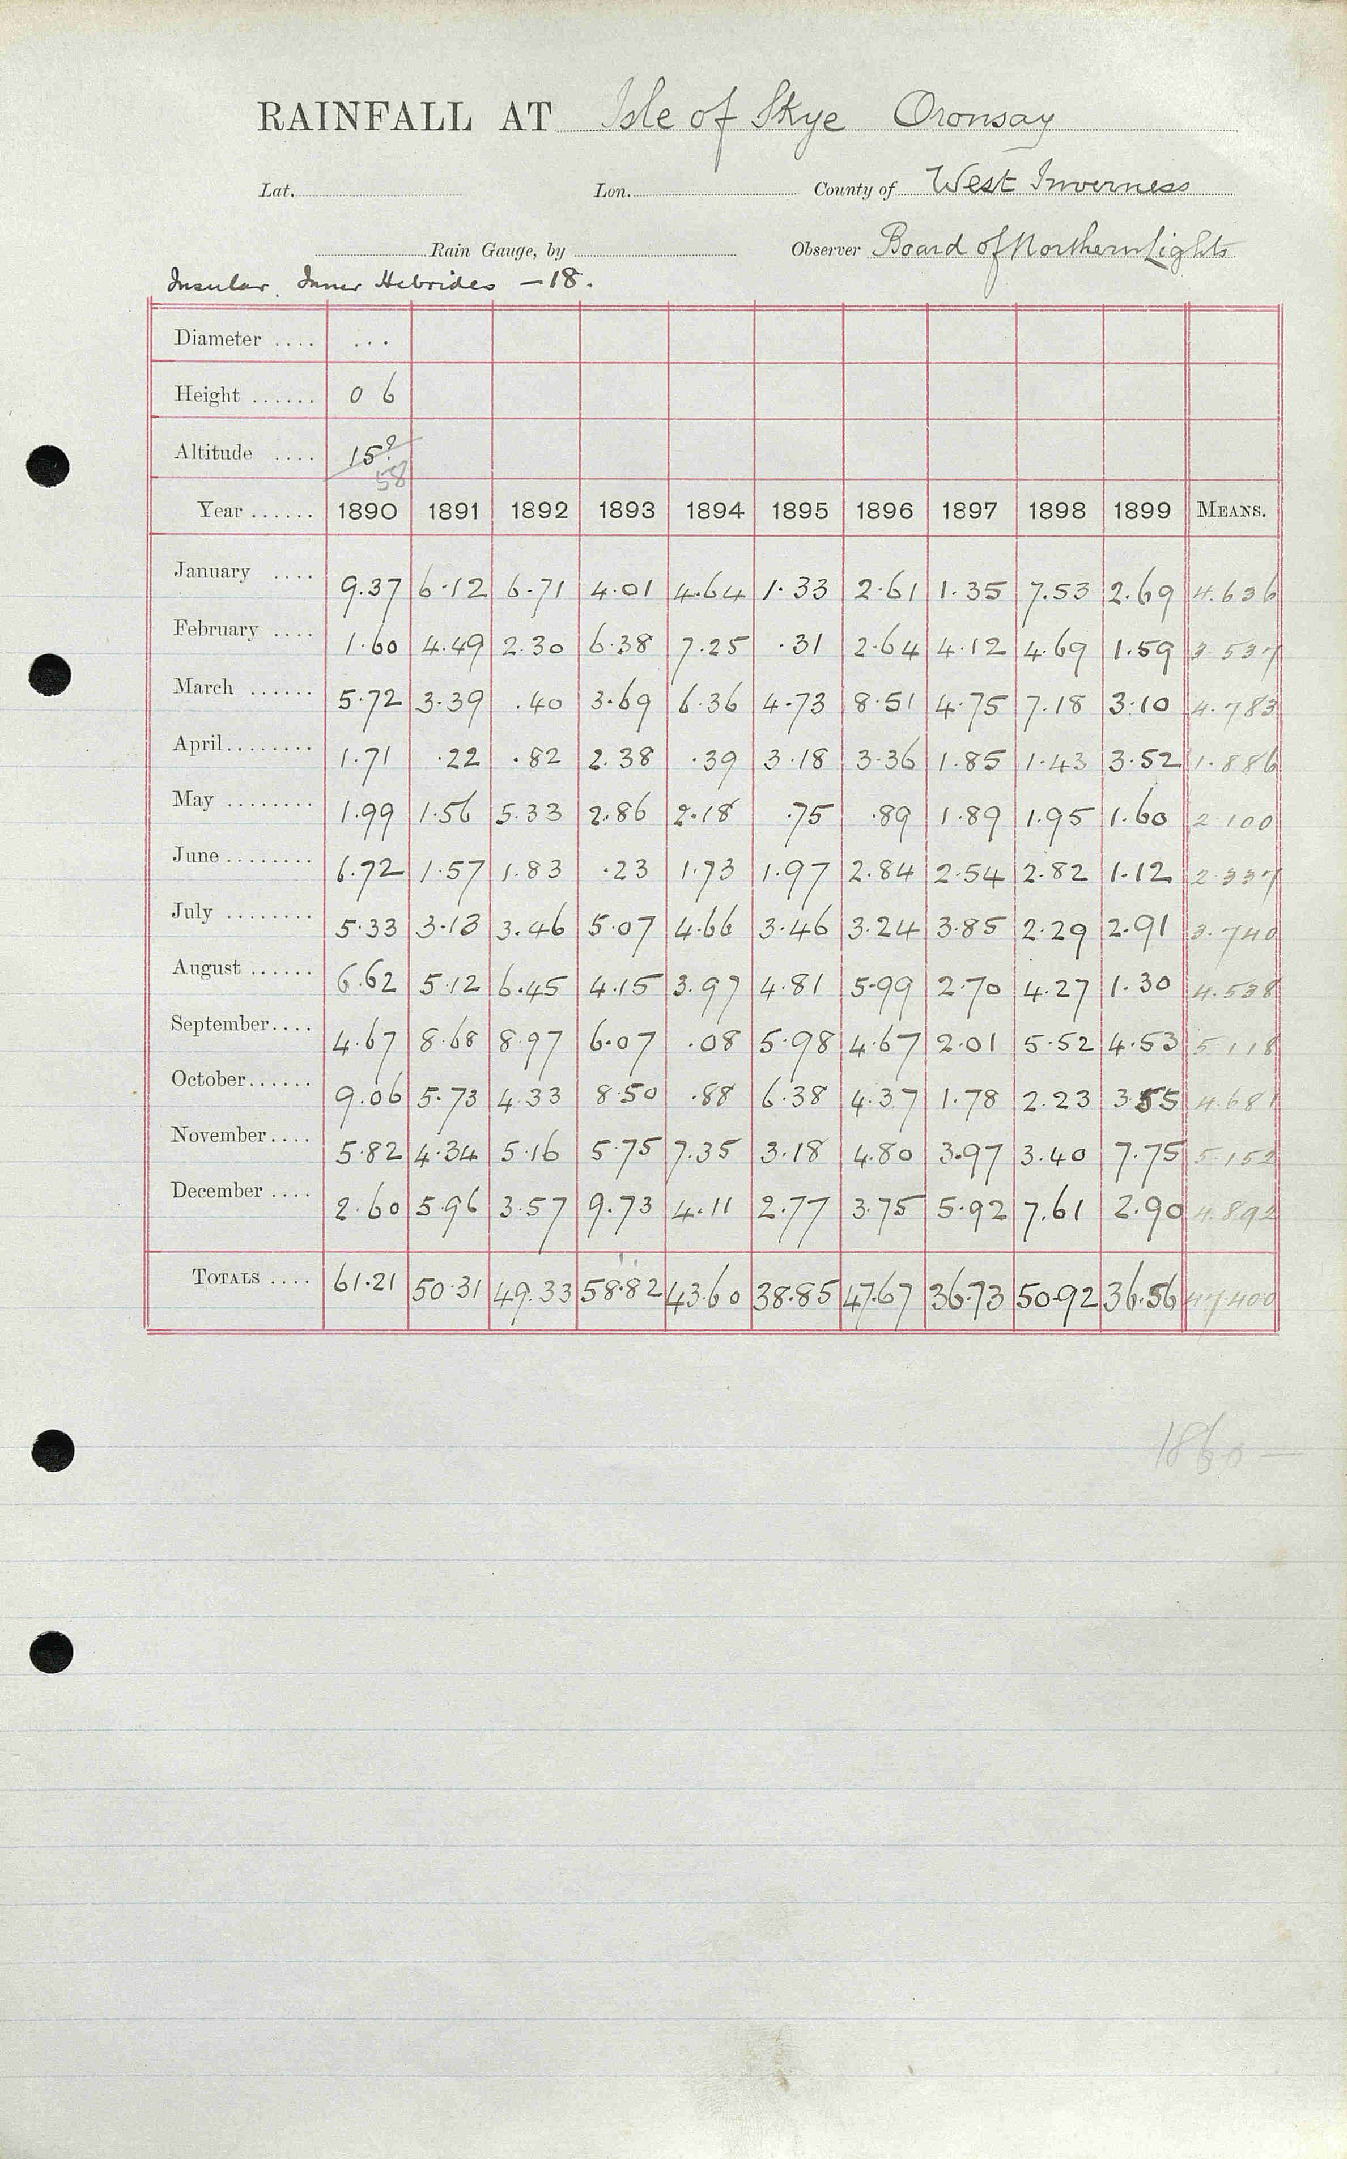 RAINFALL AT Isle of Skye Oronsay
Lat. Lon. County of West Inverness
Rain Gauge, by Observer Board of Northern Lights
Insular Inner Hebrides - 18.
Diameter .... ...
Height ...... 0 6
Altitude .... 15?
58
Year ...... 1890 1891 1892 1893 1894 1895 1896 1897 1898 1899 MEANS.
January .... 9.37 6.12 6.71 4.01 4.64 1.33 2.61 1.35 7.53 2.69 4.636
February .... 1.60 4.49 2.30 6.38 7.25 .31 2.64 4.12 4.69 1.59 3.537
March ...... 5.72 3.39 .40 3.69 6.36 4.73 8.51 4.75 7.18 3.10 4.783
April........ 1.71 .22 .82 2.38 .39 3.18 3.36 1.85 1.43 3.52 1.886
May ........ 1.99 1.56 5.33 2.86 2.18 .75 .89 1.89 1.95 1.60 2.100
June ........ 6.72 1.57 1.83 .23 1.73 1.97 2.84 2.54 2.82 1.12 2.337
July ........ 5.33 3.13 3.46 5.07 4.66 3.46 3.24 3.85 2.29 2.91 3.740
August ...... 6.62 5.12 6.45 4.15 3.97 4.81 5.99 2.70 4.27 1.30 4.538
September.... 4.67 8.68 8.97 6.07 .08 5.98 4.67 2.01 5.52 4.53 5.118
October...... 9.06 5.73 4.33 8.50 .88 6.38 4.37 1.78 2.23 3.55 4.681
November.... 5.82 4.34 5.16 5.75 7.35 3.18 4.80 3.97 3.40 7.75 5.152
December .... 2.60 5.96 3.57 9.73 4.11 2.77 3.75 5.92 7.61 2.90 4.892
TOTALS .... 61.21 50.31 49.33 58.82 43.60 38.85 47.67 36.73 50.92 36.56 47.400
1860 —